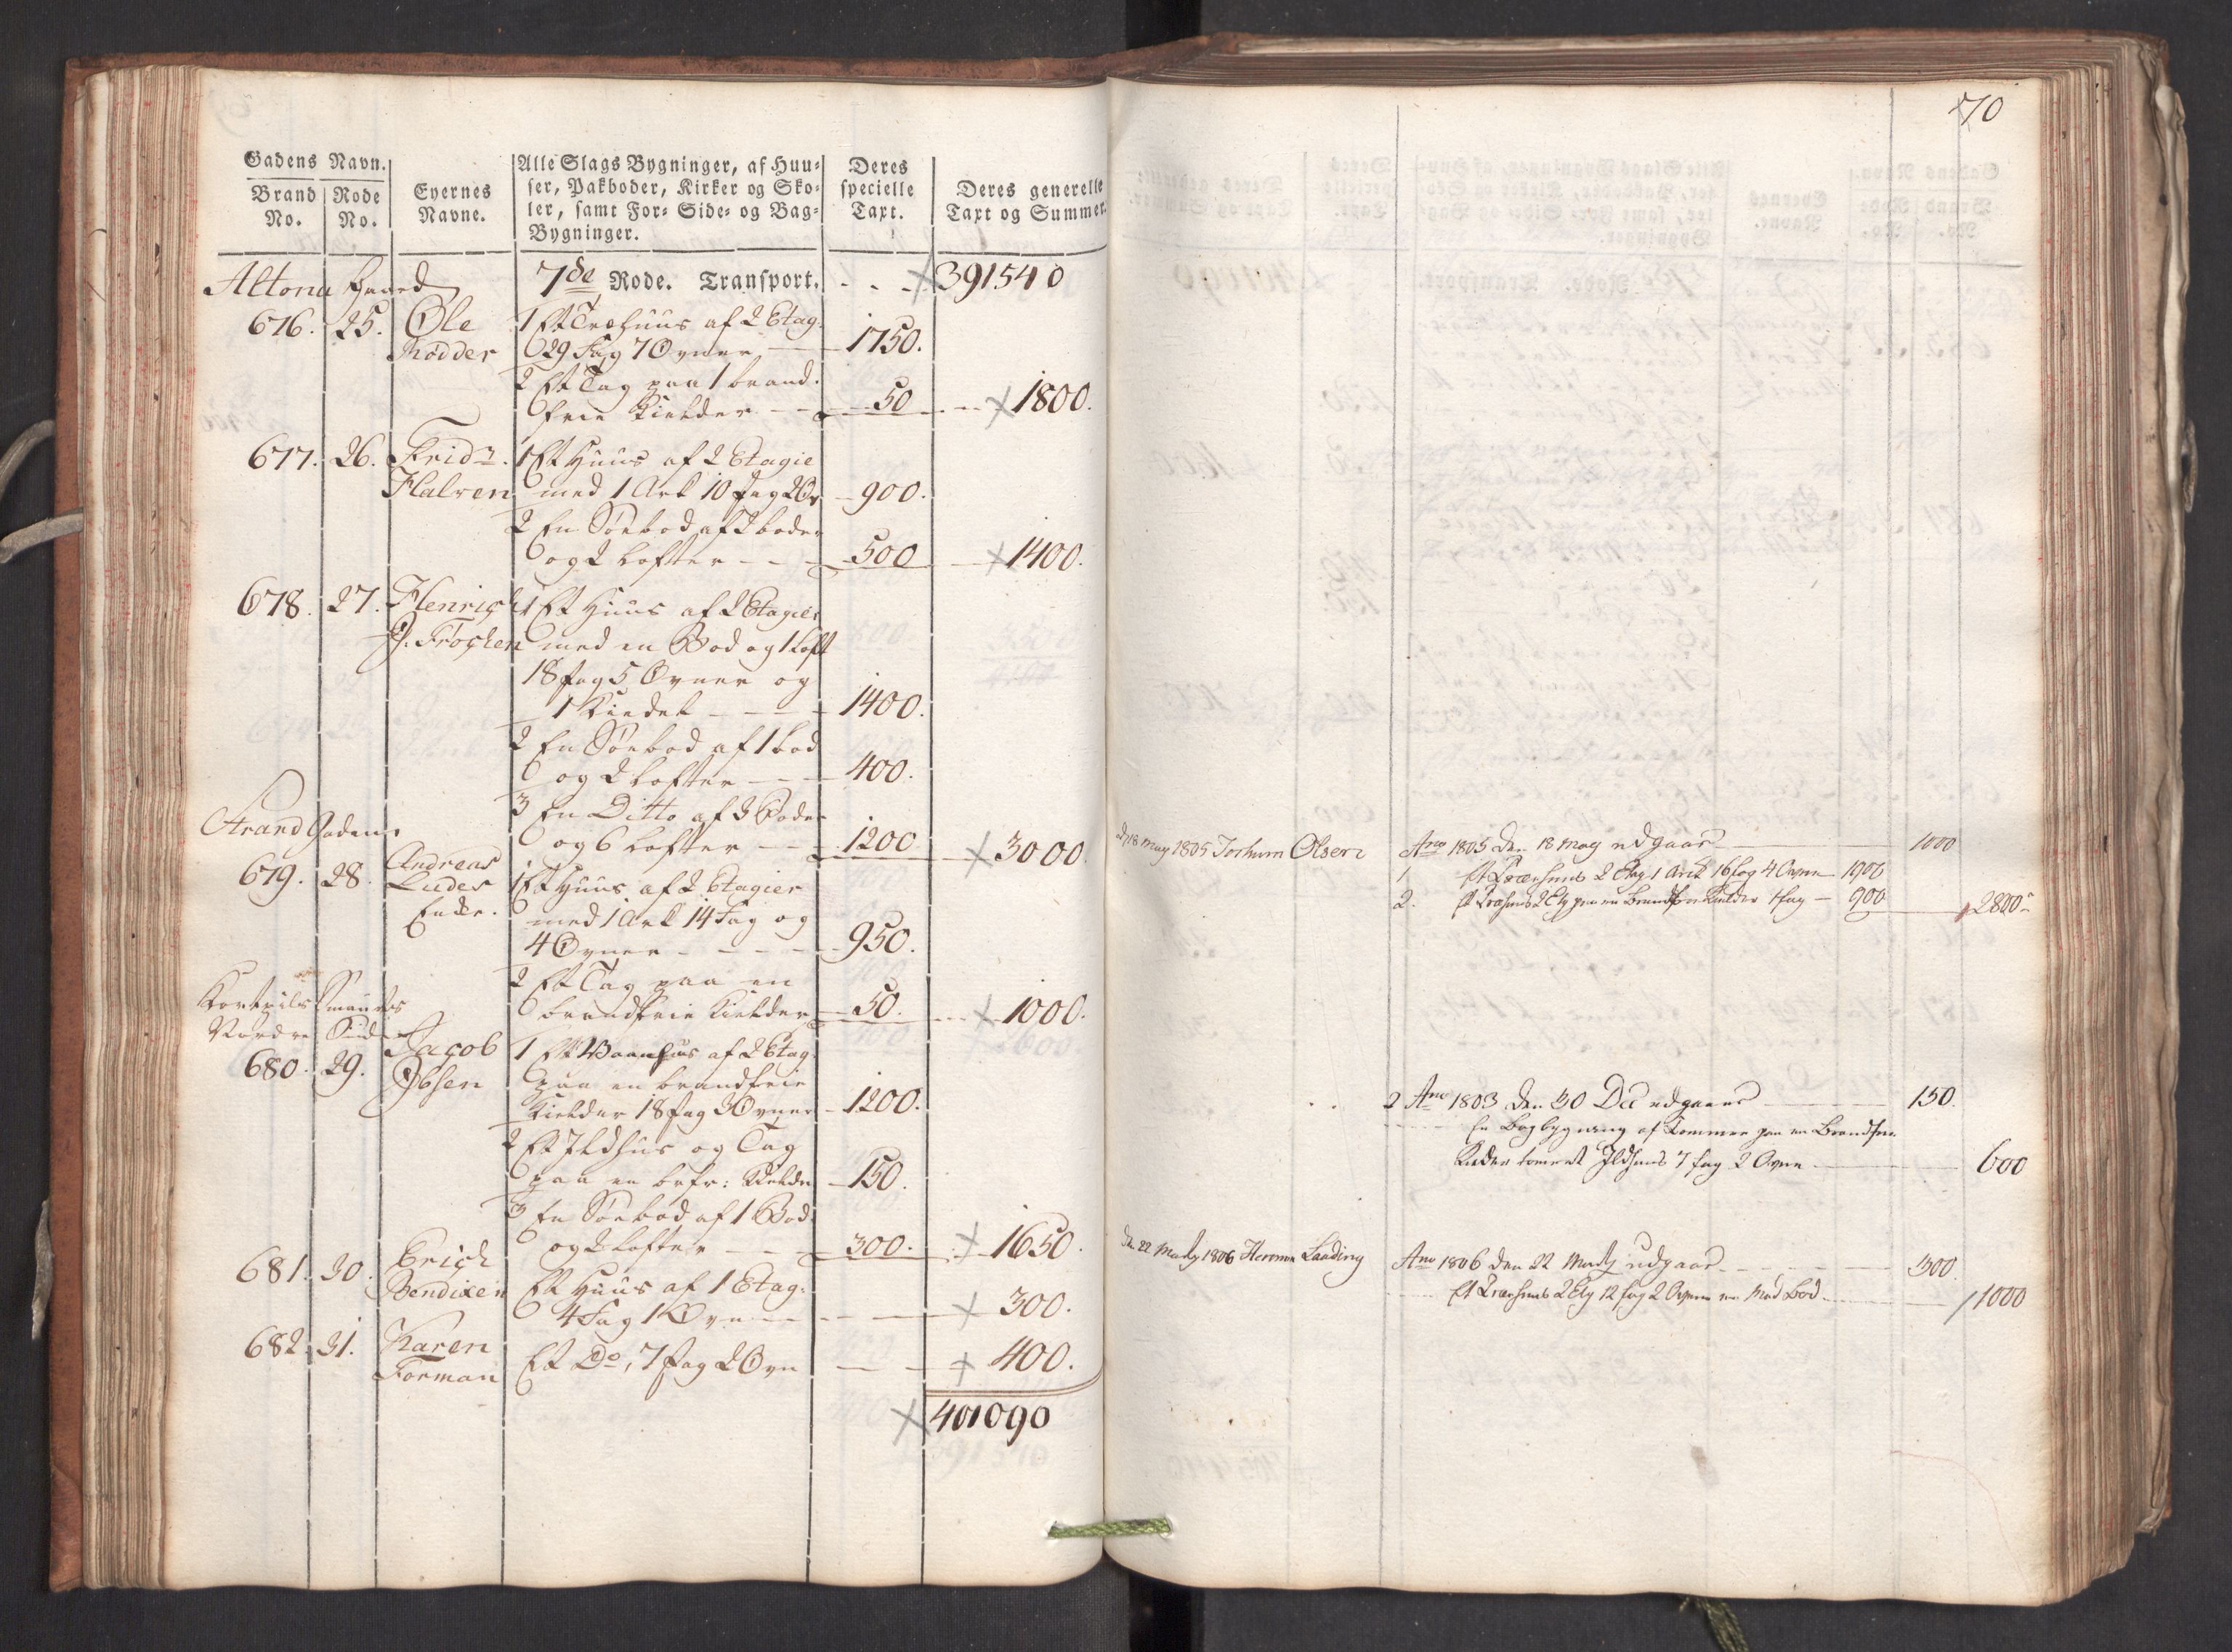 Gadens Navn.
Brand No. Rode No. Eyernes Navne. Alle Slags Bygninger, af Huu=
ser, Pakboder, Kirker og Sko=
ler, samt For= Side= og Bag=
Bygninger. Deres specielle Taxt. Deres generelle Taxt og Summer.
Altona 7de Rode. Transport. - - 391540
676. 25. Ole 1 Et Træhuus af 2 Etag.
Rødder 29 Fag 7 Ovner — 1750.
2 Et Tag paa 1 brand=
frie Kielder - - 50 - - 1800.
677. 26. Frid. 1 Et Huus af 2 Etagie
Halven med 1 Ark 10 Fag 2 Ov - 900.
2 En Søebod af 2 boder
og 2 Lofter - - 500 - 1400.
678. 27. Henrich 1 Et Huus af 2 Etagier
J. Froshen med en Bod og 1 Loft
18 fag 5 Ovner og
1 Kiedel - - - 1400.
2 En Søebod af 1 bod
og 2 Lofter - - - 400.
3 En Ditto af 3 Boder
Strand Gaden og 6 Lofter - - 1200 3000.
679. 28. Andreas
Luder 1 Et Huus af 2 Etagier
Enke. med 1 Ark 14 Fag og
4 Ovner - - - - 950.
2 Et Tag paa en
brandfrie Kielder 50. - - 1000.
Nordre Side
680. 29. Jacob 1 Et Vaanhus af 2 Etag
Ibsen paa en brandfrie
Kielder 18 fag 3 Ovner - 1200.
2 Et Ildhus og Tag
paa en brfr: Kielder - 150.
3 En Søebod af 1 Bod
og 2 Lofter - - 300. - 1650.
681. 30. Erich
Bendixen Et Huus af 1 Etag.
4 Fag 1 Ovn - - - - 300.
682. 31. Karen
Forman Et Do, 7 fag 2 Ovn - - 400.
401090
70
d 18 May 1805 Jochum Olsen Ano 1805 den 18 May udgaar — 1000
1 Et Træhuus 2 Etg 1 Ark 16 fag 4 Ovne — 1900
2. Et Træhuus 2 Etg paa en Brandfrie Kielder 4 fag — 900 2800
2 Ano 1803 den 30 Dec udgaaer — 150.
En Bagbygning af Tømmer paa en Brandfrie
Kielder Ildhuus 7 fag 2 Ovne — 600
den 22 Martz 1806 Herman Landing Ano 1806 den 22 Martz udgaar - - - 300.
Et Træehuus 2 Etg 12 fag 2 Ovne en Mad Bod - - 1000